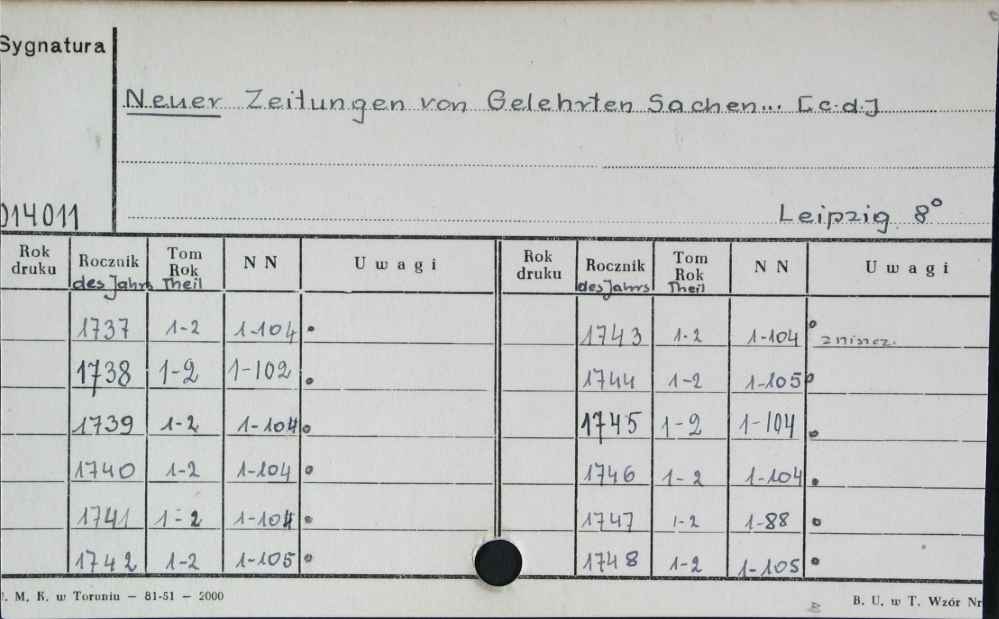 Sygnatura
Neuer Zeitungen von Gelehrten Sachen... [c.d.]
014011
Leipzig 8°
Rok druku Rocznik des Jahrs Tom Rok Theil NN Uwagi Rok druku Rocznik des Jahrs Tom Rok Theil NN Uwagi
1737 1-2 1-104 1743 1-2 1-104
1738 1-2 1-102 1744 1-2 1-105
1739 1-2 1-104 1745 1-2 1-104
1740 1-2 1-104 1746 1-2 1-104
1741 1-2 1-104 1747 1-2 1-88
1742 1-2 1-105 1748 1-2 1-105
. M. K. w Toruniu — 81-51 — 2000
B. U. w T. Wzór Nr